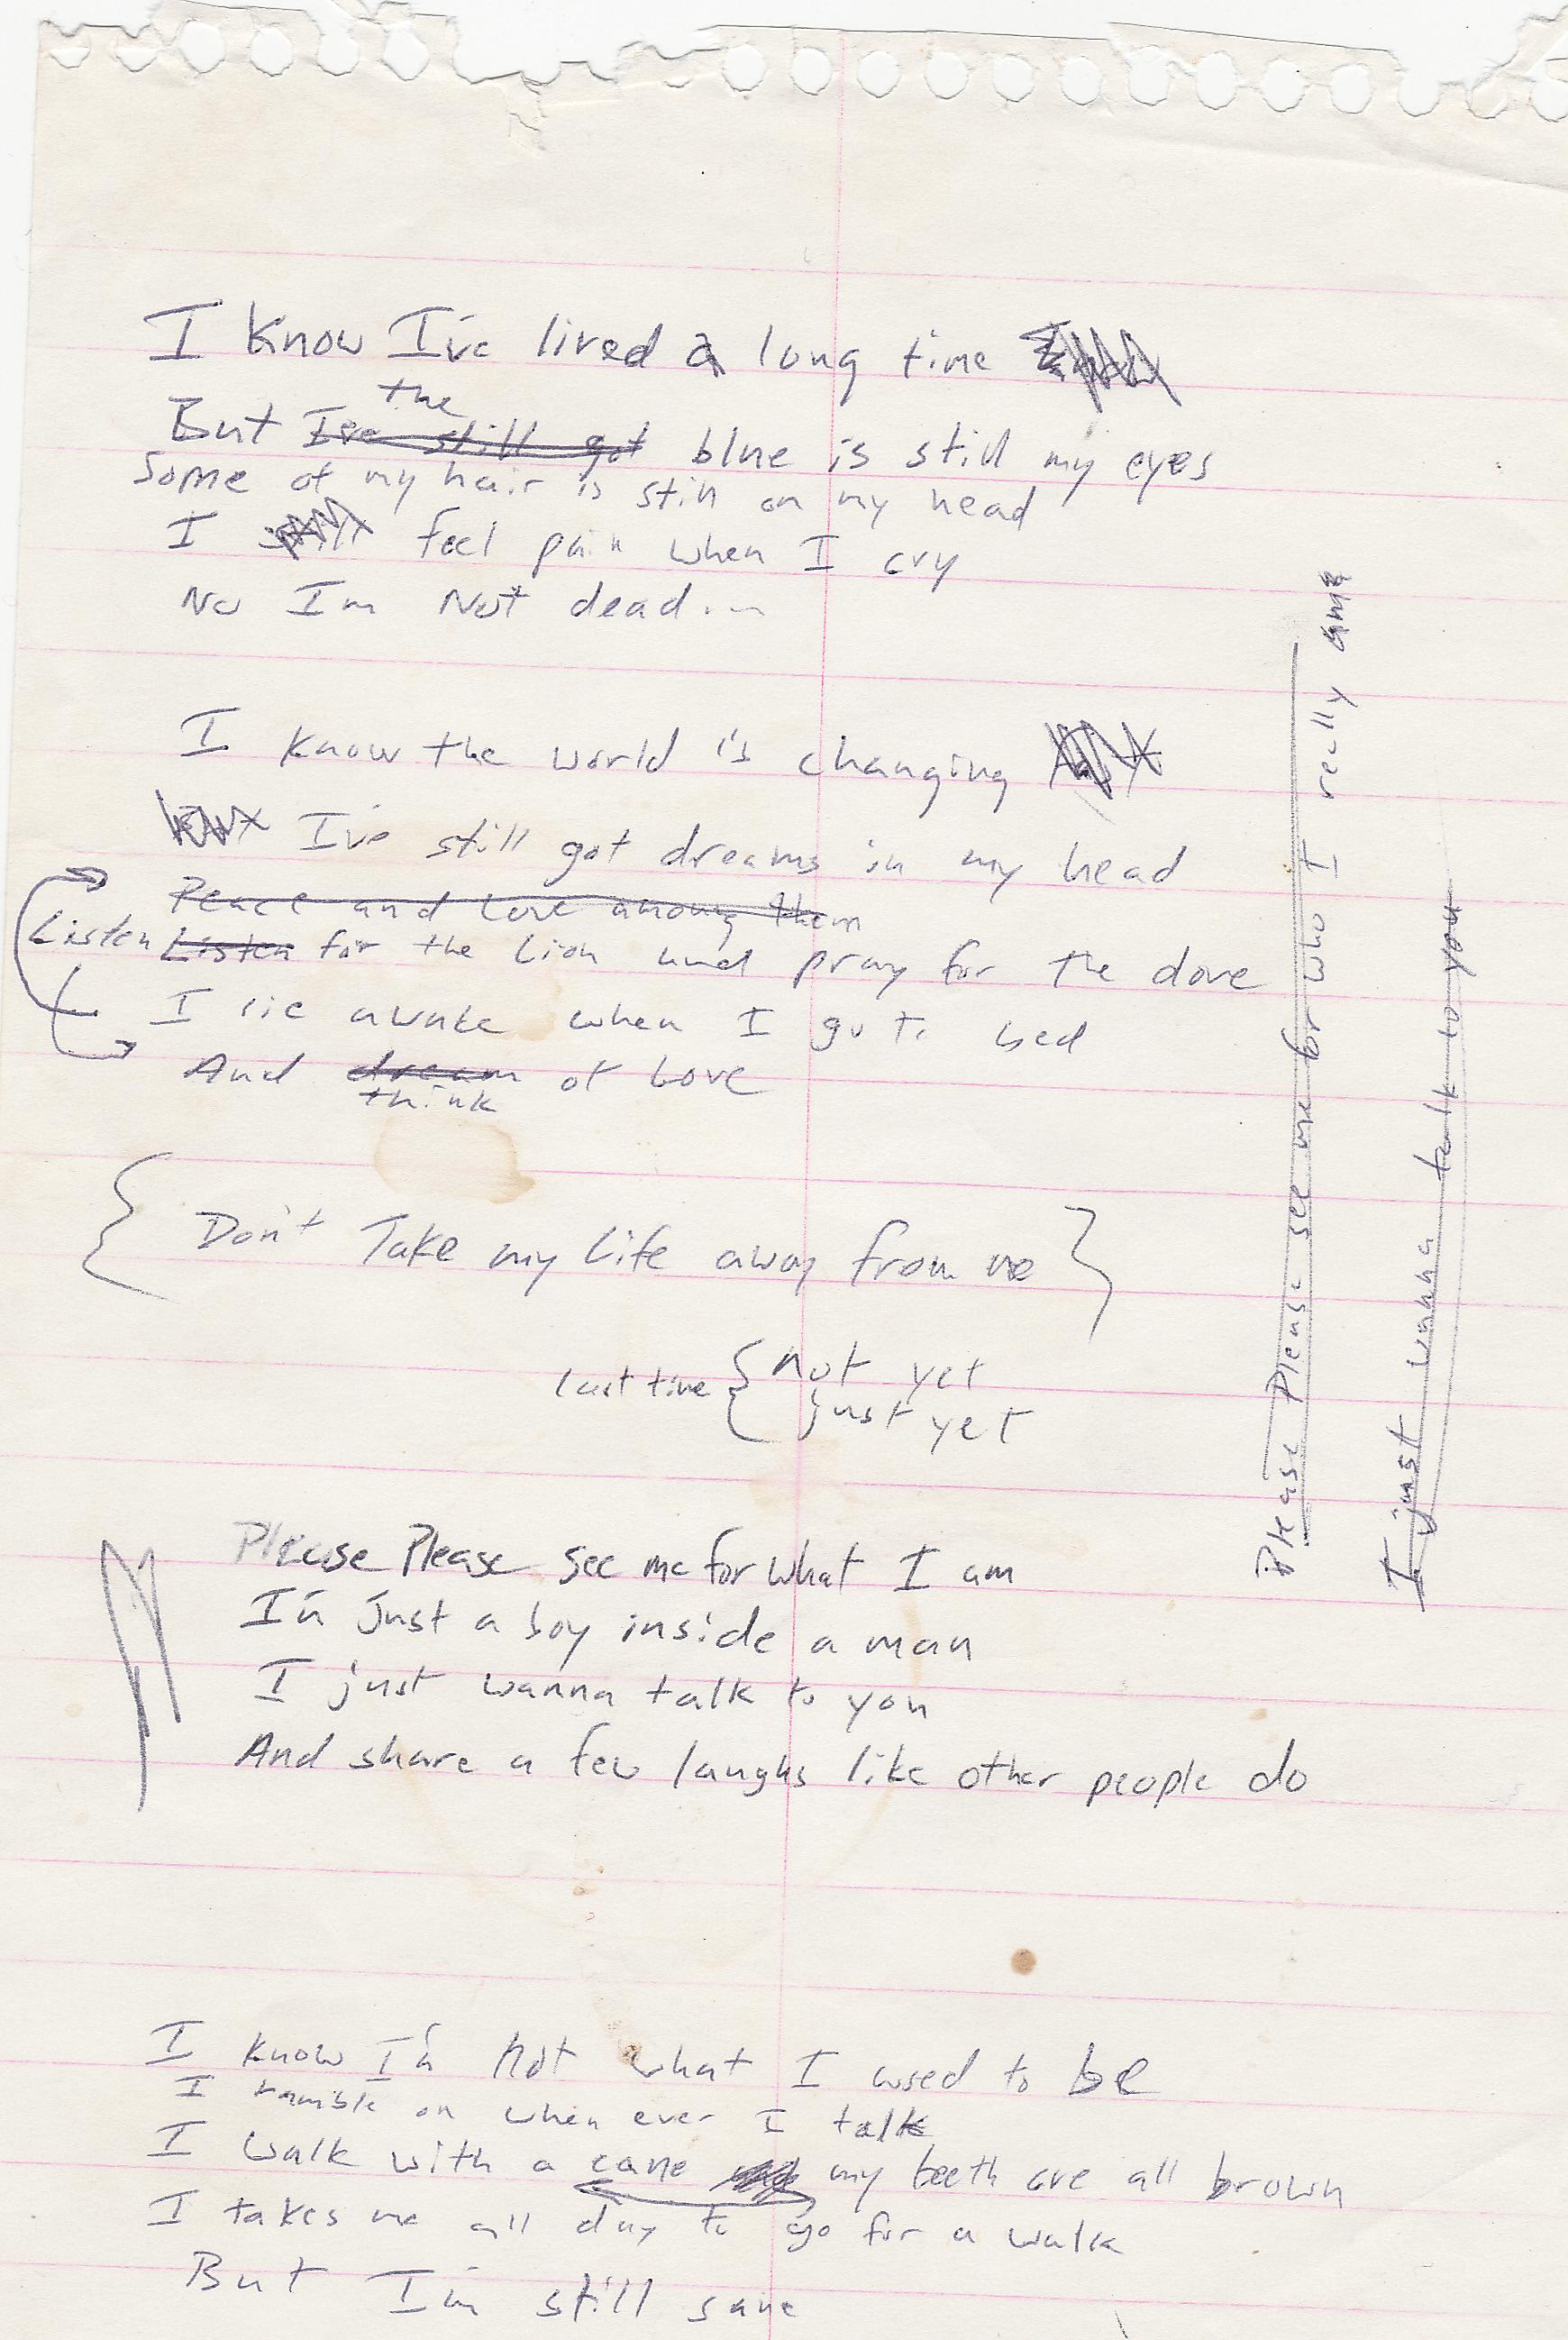 I Know I've lived a long time
the
But I've still got blue is still my eyes
Some of my hair is still on my head
I still feel pain when I cry
No Im Not dead...
I know the world is changing
I've still got dreams in my head
Peace and Love among them
Listen Listen for the Lion and pray for the dove
I lie awake when I go to bed
And dream of Love
think
Don't Take my Life away from me
last time { not yet
just yet
Please Please see me for what I am
I'm just a boy inside a man
I just wanna talk to you
And share a few laughs like other people do
I know I'm Not what I used to be
I ramble on when ever I talk
I walk with a cane my teeth are all brown
I takes me all day to go for a walk
But I'm still sane
Please Please see me for who I really am
I just wanna talk to you